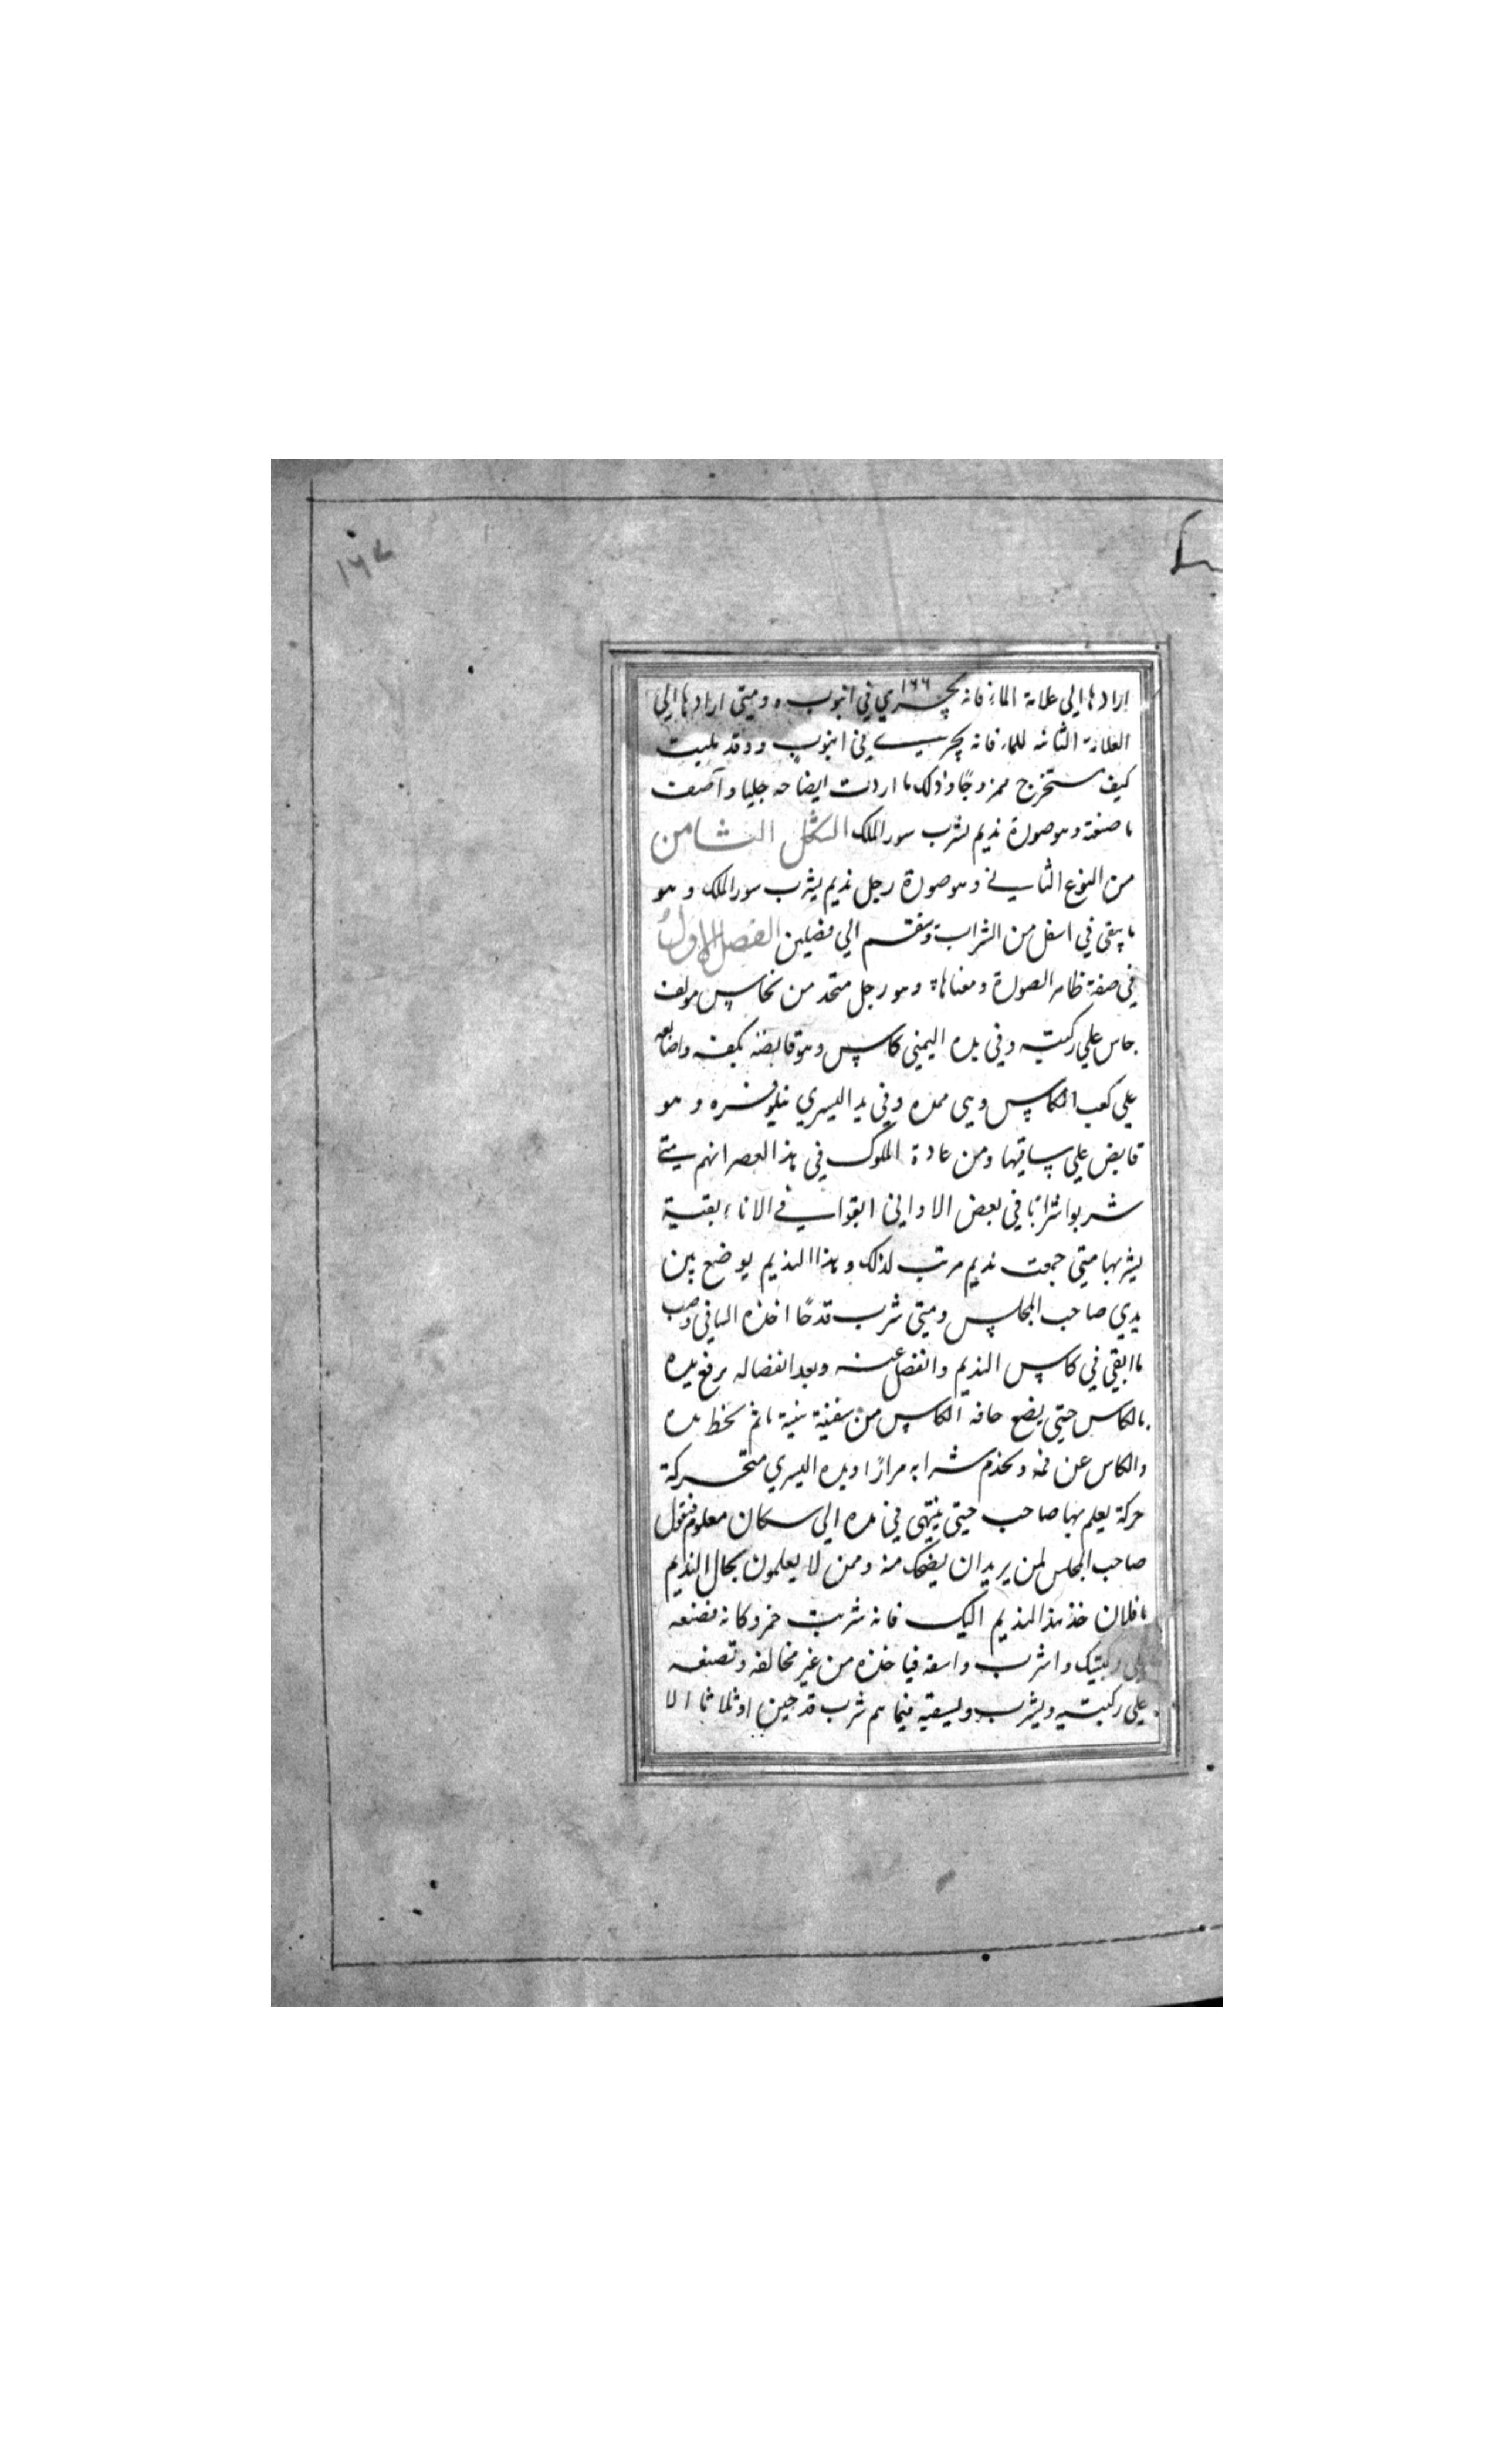 ١٦٧
ارادها الي علامة الماء فانه يجري في انبوب ه ومتي ارادها الي
١٦٦
العلامة الثانيه للماء فانه يجري في انبوب و وقد بينت
كيف يستخرج ممزوجًا وذلك ما اردت ايضاحه جليا واصف
ما صنعته وهو صورة نديم يشرب سور الملك الشكل الثامن
من النوع الثاني وهو صورة رجل نديم يشرب سور الملك وهو
ما يبقي في اسفل من الشراب وينقسم الي فصلين الفصل الاول
في صفة ظاهر الصورة ومعناها وهو رجل متخد من نحاس مولف
جاس علي ركبتيه وفي يده اليمني كاس وهو قابضه بكفه واصابعه
علي كعب الكاس وهي ممده وفي يد اليسري نيلوفره وهو
قابض علي ساقيها ومن عادة الملوك في هذا العصر انهم متي
شربوا شرابًا في بعض الاواني ابقوا في الاناء بقية
يشربها متي جمعت نديم مرتب لذلك وهذا النديم يوضع بين
يدي صاحب المجلس ومتي شرب قدحًا اخذه الساقي وصب
ما ابقي في كاس النديم وانفصل عنه وبعد انفصاله يرفع يده
بالكاس حتي يضع حافة الكاس من سفينة ثم يحط يده
والكاس عن فمه ويخذم شرابه مرارًا ويده اليسري متحركة
حركة يعلم بها صاحب حتي ينتهي في يده الي سكان معلوم فيقول
صاحب المجلس لمن يريد ان يضحك منه وممن لا يعلمون بحال النديم
يا فلان خذ هذا النديم اليك فانه شربت خمر وكانه فضعه
علي ركبتيك واشرب واسقه فياخذه من غير مخالفه وتصنعه
علي ركبتيه ويشرب ويسقيه فيما هم شرب قدحين او ثلاثا الا